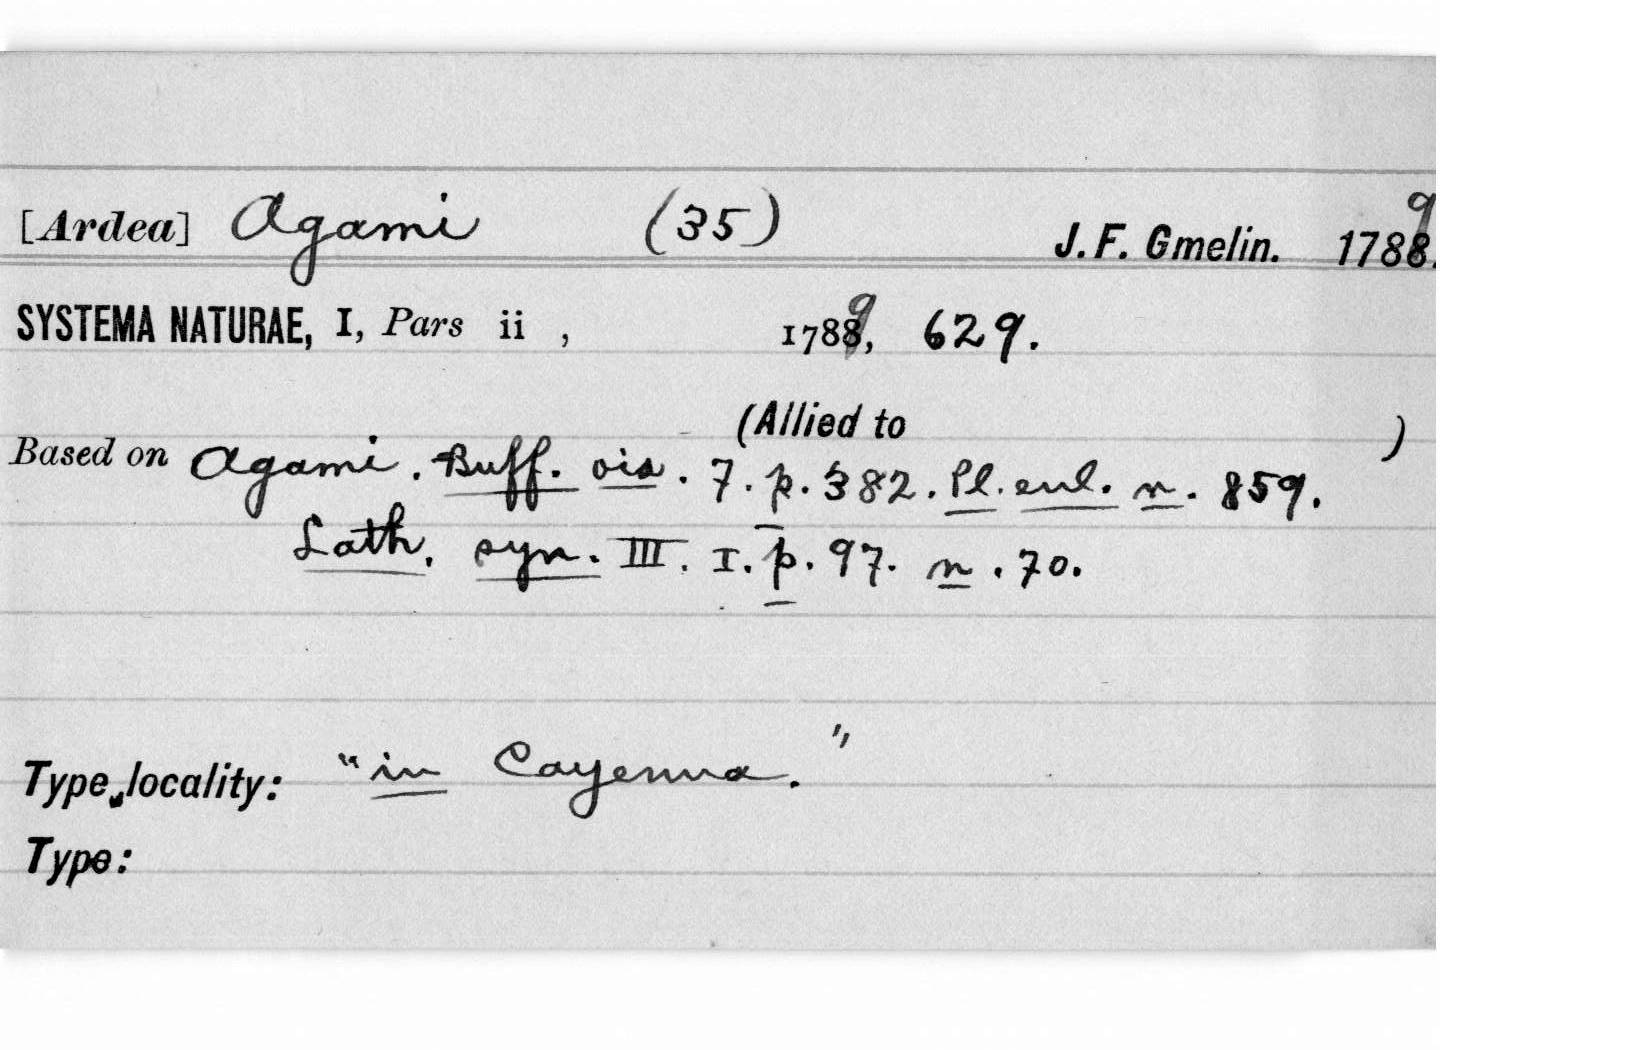 [Ardea] Agami (35) J. F. Gmelin. 1789.
SYSTEMA NATURAE, I, Pars ii , 1789, 629.
(Allied to )
Based on Agami. Buff. ois. 7. p. 382. Pl. enl. n. 859.
Lath. syn. III. I. p. 97. n. 70.
Type locality: "in Cayenna."
Type: